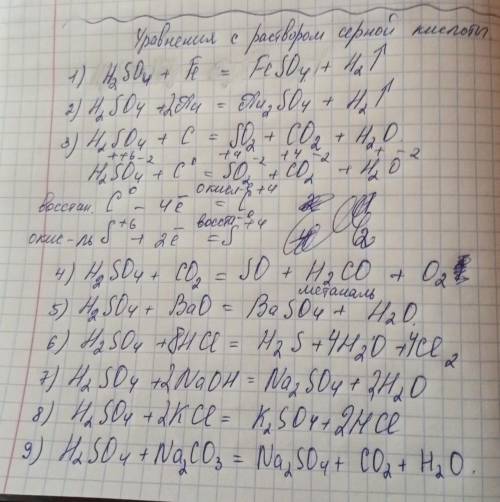 Уравнения с раствором серной кислоты
1) H₂SO₄ + Fe = FeSO₄ + H₂↑
2) H₂SO₄ + 2Na = Na₂SO₄ + H₂↑
3) H₂SO₄ + C = SO₂ + CO₂ + H₂O
+ +6 -2 +4 -2 +4 -2 + -2
H₂SO₄ + C⁰ = SO₂ + CO₂ + H₂O
восстан. C⁰ - 4ē окисл-е = C⁺⁴ 1
окис-ль S⁺⁶ + 2ē восст-е = S⁺⁴ 2
4) H₂SO₄ + CO₂ = SO + H₂CO + O₂
метаналь
5) H₂SO₄ + BaO = BaSO₄ + H₂O.
6) H₂SO₄ + 8HCl = H₂S + 4H₂O + 4Cl₂
7) H₂SO₄ + 2NaOH = Na₂SO₄ + 2H₂O
8) H₂SO₄ + 2KCl = K₂SO₄ + 2HCl
9) H₂SO₄ + Na₂CO₃ = Na₂SO₄ + CO₂ + H₂O.